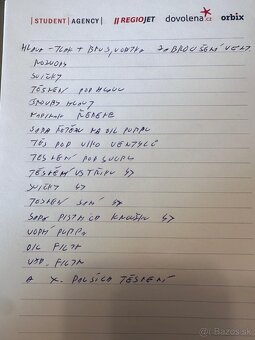 STUDENT AGENCY REGIOJET dovolena.cz orbix
HLAVA - TLAK + BRUS, VODÍTKA ZABROUŠENÍ VENT.
ROZVODY
SVÍČKY
TĚSNĚNÍ POD HLAVU
ŠROUBY HLAVY
ŘEMENE
SADA ŘETĚZU NA OIL PUMPU
TĚS POD VIKO VENTILŮ
TĚSNĚNÍ
TĚSNĚNÍ VSTŘIKU 4x
SVÍČKY 4x
TĚSNĚNÍ SÁNÍ 4x
SADA PÍSTNÍCH KROUŽKŮ 4x
VODNÍ PUMPA
OIL FILTR
VZD. FILTR
A X. DALŠÍCH TĚSNĚNÍ
bazos.sk